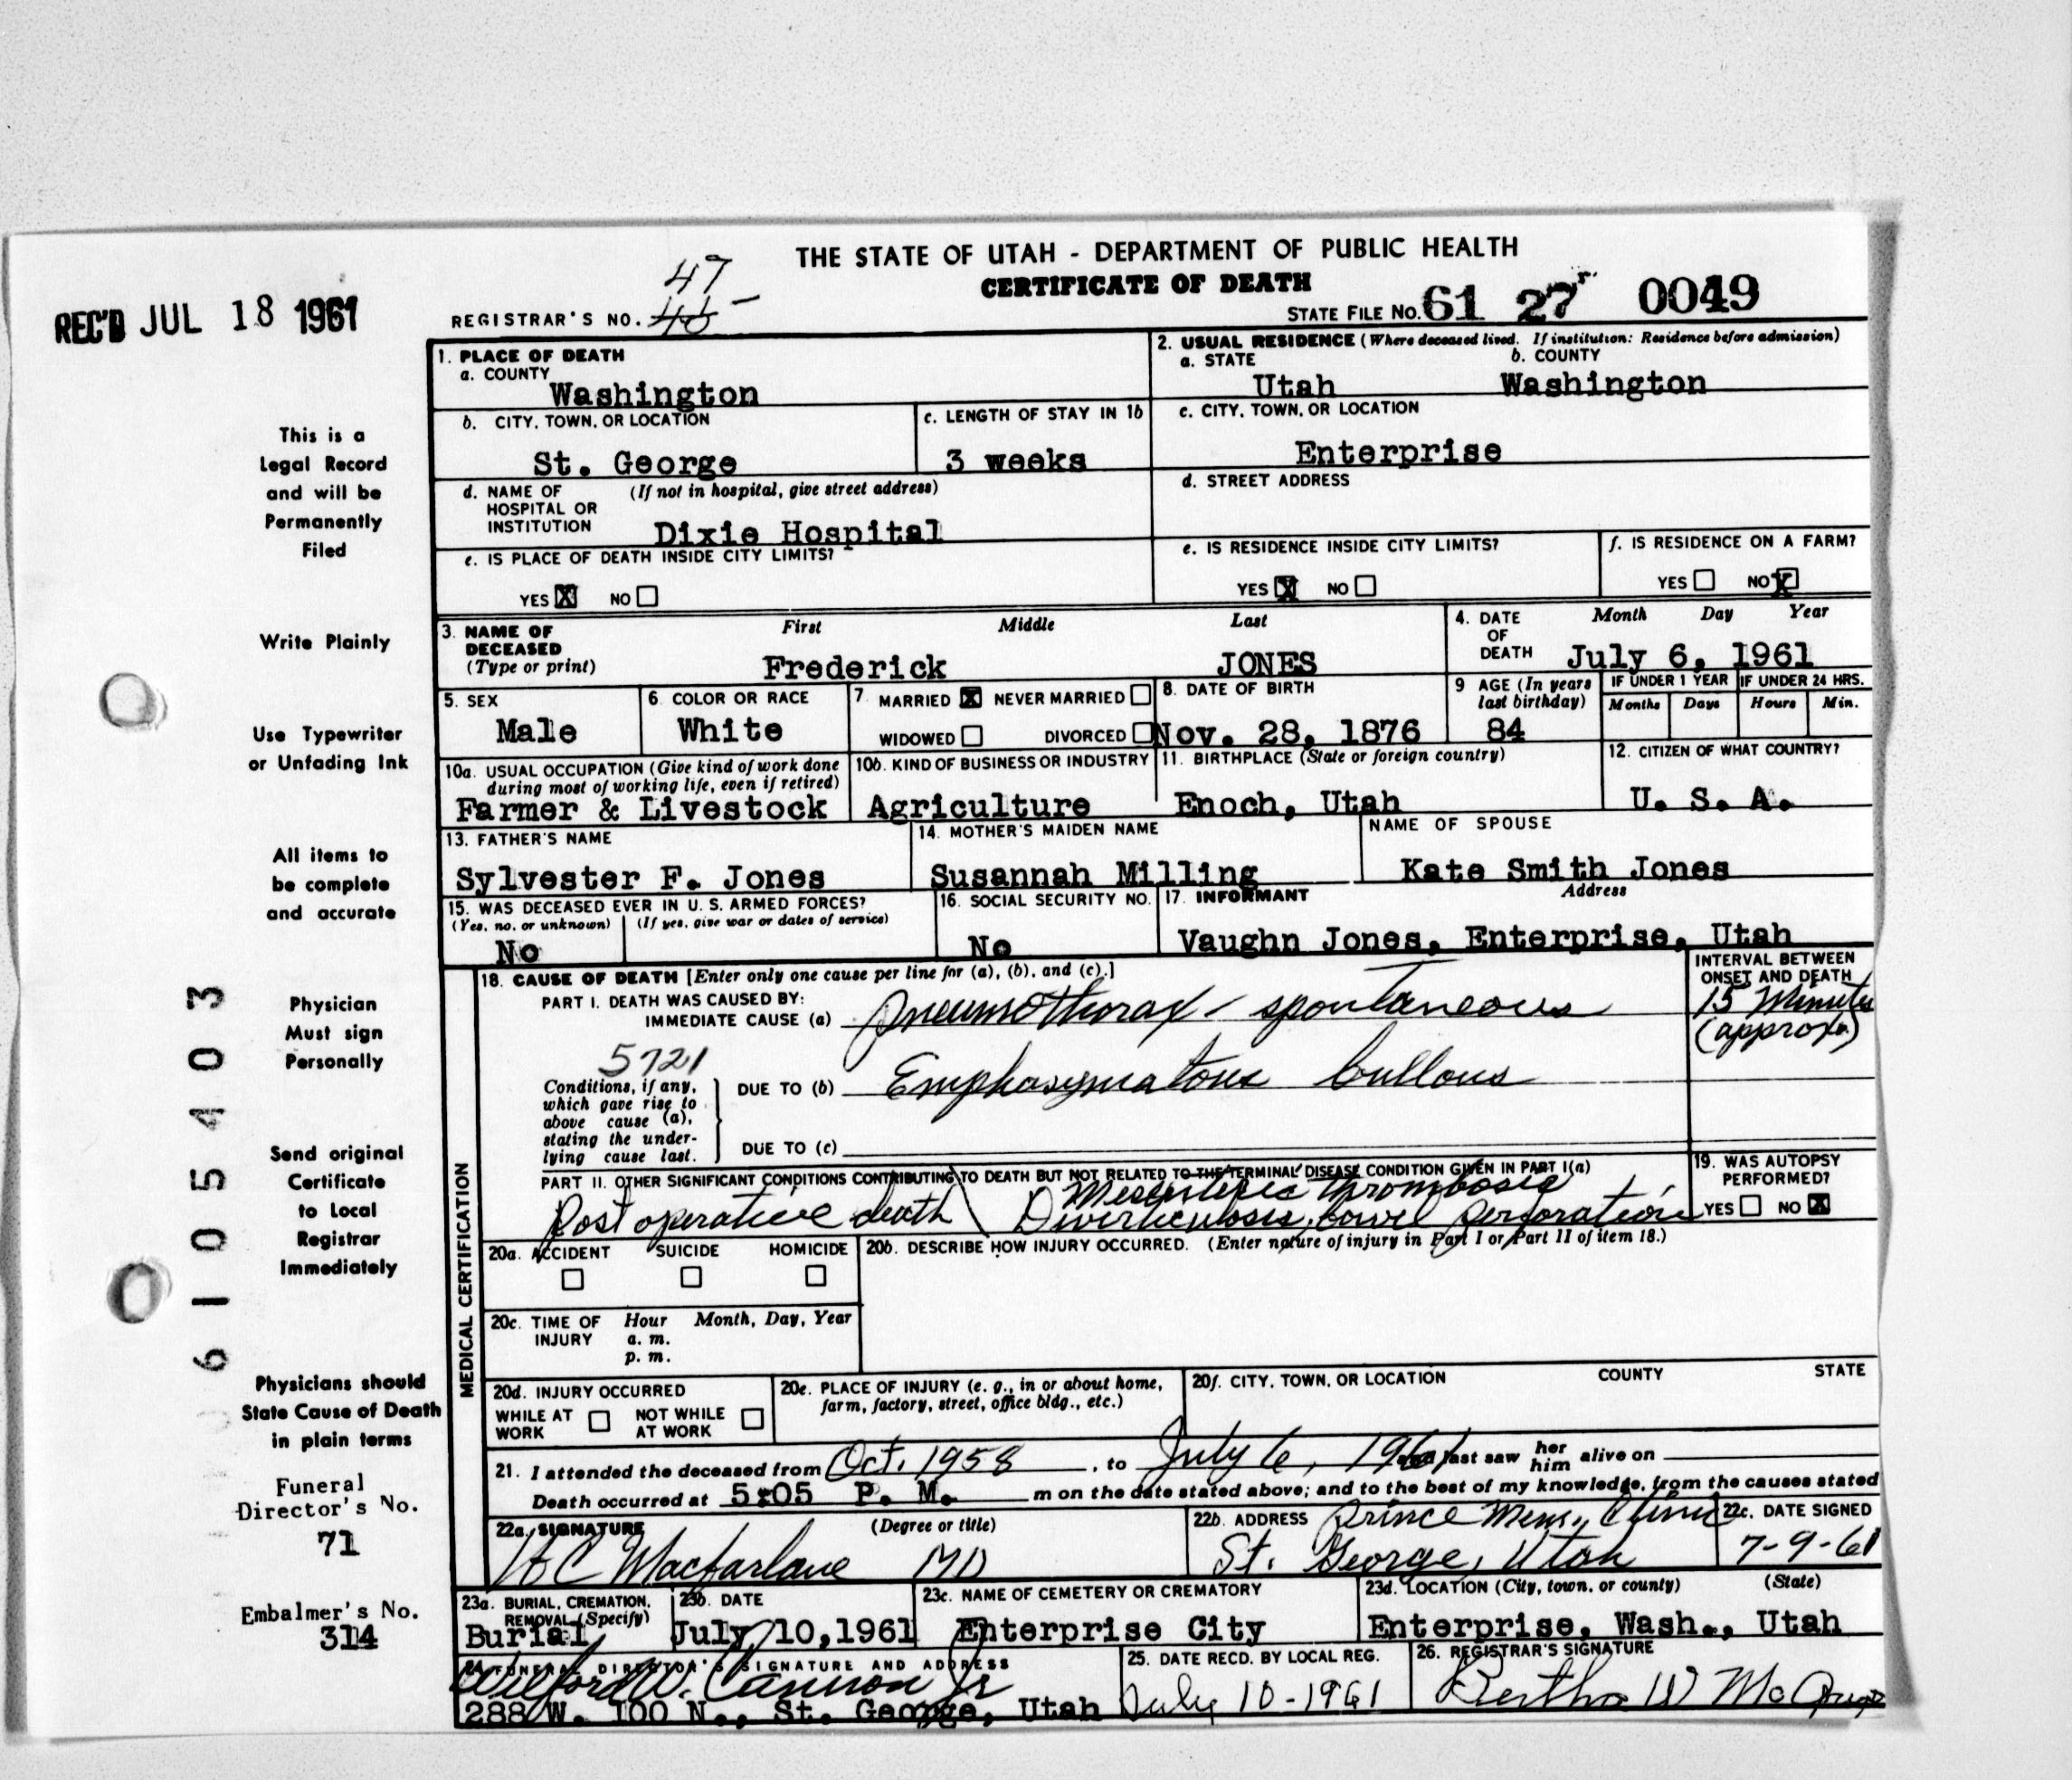 THE STATE OF UTAH - DEPARTMENT OF PUBLIC HEALTH
CERTIFICATE OF DEATH
REC'D JUL 18 1961
47
REGISTRAR'S NO. 46
STATE FILE NO. 61 27 0049
1. PLACE OF DEATH
a. COUNTY
Washington
2. USUAL RESIDENCE (Where deceased lived. If institution: Residence before admission)
a. STATE b. COUNTY
Utah Washington
b. CITY, TOWN, OR LOCATION
St. George
c. LENGTH OF STAY IN 1b
3 weeks
c. CITY, TOWN, OR LOCATION
Enterprise
d. NAME OF (If not in hospital, give street address)
HOSPITAL OR
INSTITUTION Dixie Hospital
d. STREET ADDRESS
e. IS PLACE OF DEATH INSIDE CITY LIMITS?
YES X NO
e. IS RESIDENCE INSIDE CITY LIMITS?
YES X NO
f. IS RESIDENCE ON A FARM?
YES NO X
3. NAME OF DECEASED (Type or print)
First Middle Last
Frederick JONES
4. DATE OF DEATH Month Day Year
July 6, 1961
5. SEX
Male
6. COLOR OR RACE
White
7. MARRIED X NEVER MARRIED
WIDOWED DIVORCED
8. DATE OF BIRTH
Nov. 28, 1876
9 AGE (In years last birthday)
84
IF UNDER 1 YEAR IF UNDER 24 HRS.
Months Days Hours Min.
10a. USUAL OCCUPATION (Give kind of work done
during most of working life, even if retired)
Farmer & Livestock
10b. KIND OF BUSINESS OR INDUSTRY
Agriculture
11. BIRTHPLACE (State or foreign country)
Enoch, Utah
12. CITIZEN OF WHAT COUNTRY?
U. S. A.
13. FATHER'S NAME
Sylvester F. Jones
14. MOTHER'S MAIDEN NAME
Susannah Milling
NAME OF SPOUSE
Kate Smith Jones
15. WAS DECEASED EVER IN U. S. ARMED FORCES?
(Yes, no, or unknown) (If yes, give war or dates of service)
No
16. SOCIAL SECURITY NO.
No
17. INFORMANT Address
Vaughn Jones, Enterprise, Utah
MEDICAL CERTIFICATION
18. CAUSE OF DEATH [Enter only one cause per line for (a), (b), and (c).]
INTERVAL BETWEEN
ONSET AND DEATH
PART I. DEATH WAS CAUSED BY:
IMMEDIATE CAUSE (a) Pneumothorax - spontaneous
15 Minutes
(approx)
5721
Conditions, if any,
which gave rise to
above cause (a),
stating the under-
lying cause last.
DUE TO (b) Emphasymatous bullous
DUE TO (c)
PART II. OTHER SIGNIFICANT CONDITIONS CONTRIBUTING TO DEATH BUT NOT RELATED TO THE TERMINAL DISEASE CONDITION GIVEN IN PART I(a)
Mesenteric thrombosis
Post operative death Diverticulosis, bowel perforation
19. WAS AUTOPSY
PERFORMED?
YES NO X
20a. ACCIDENT SUICIDE HOMICIDE
20b. DESCRIBE HOW INJURY OCCURRED. (Enter nature of injury in Part I or Part II of item 18.)
20c. TIME OF INJURY Hour Month, Day, Year
a. m.
p. m.
20d. INJURY OCCURRED
WHILE AT WORK NOT WHILE AT WORK
20e. PLACE OF INJURY (e. g., in or about home,
farm, factory, street, office bldg., etc.)
20f. CITY, TOWN, OR LOCATION COUNTY STATE
21. I attended the deceased from Oct. 1958, to July 6, 1961 and last saw her him alive on
Death occurred at 5:05 P. M. m on the date stated above; and to the best of my knowledge, from the causes stated
22a. SIGNATURE (Degree or title)
MacFarlane MD
22b. ADDRESS Prince Mem., Clinic
St. George, Utah
22c. DATE SIGNED
7-9-61
23a. BURIAL, CREMATION,
REMOVAL (Specify)
Burial
23b. DATE
July 10, 1961
23c. NAME OF CEMETERY OR CREMATORY
Enterprise City
23d. LOCATION (City, town, or county) (State)
Enterprise, Wash., Utah
24. FUNERAL DIRECTOR'S SIGNATURE AND ADDRESS
Wilford W. Cannon Jr
288 W. 100 N., St. George, Utah
25. DATE RECD. BY LOCAL REG.
July 10-1961
26. REGISTRAR'S SIGNATURE
Bertha W
This is a
Legal Record
and will be
Permanently
Filed
Write Plainly
Use Typewriter
or Unfading Ink
All items to
be complete
and accurate
Physician
Must sign
Personally
Send original
Certificate
to Local
Registrar
Immediately
Physicians should
State Cause of Death
in plain terms
Funeral
Director's No.
71
Embalmer's No.
314
6105403